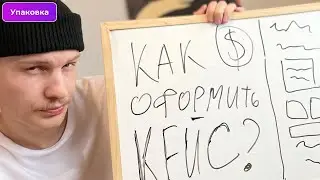 Упаковка
КАК $
ОФОРМИТЬ
КЕЙС?